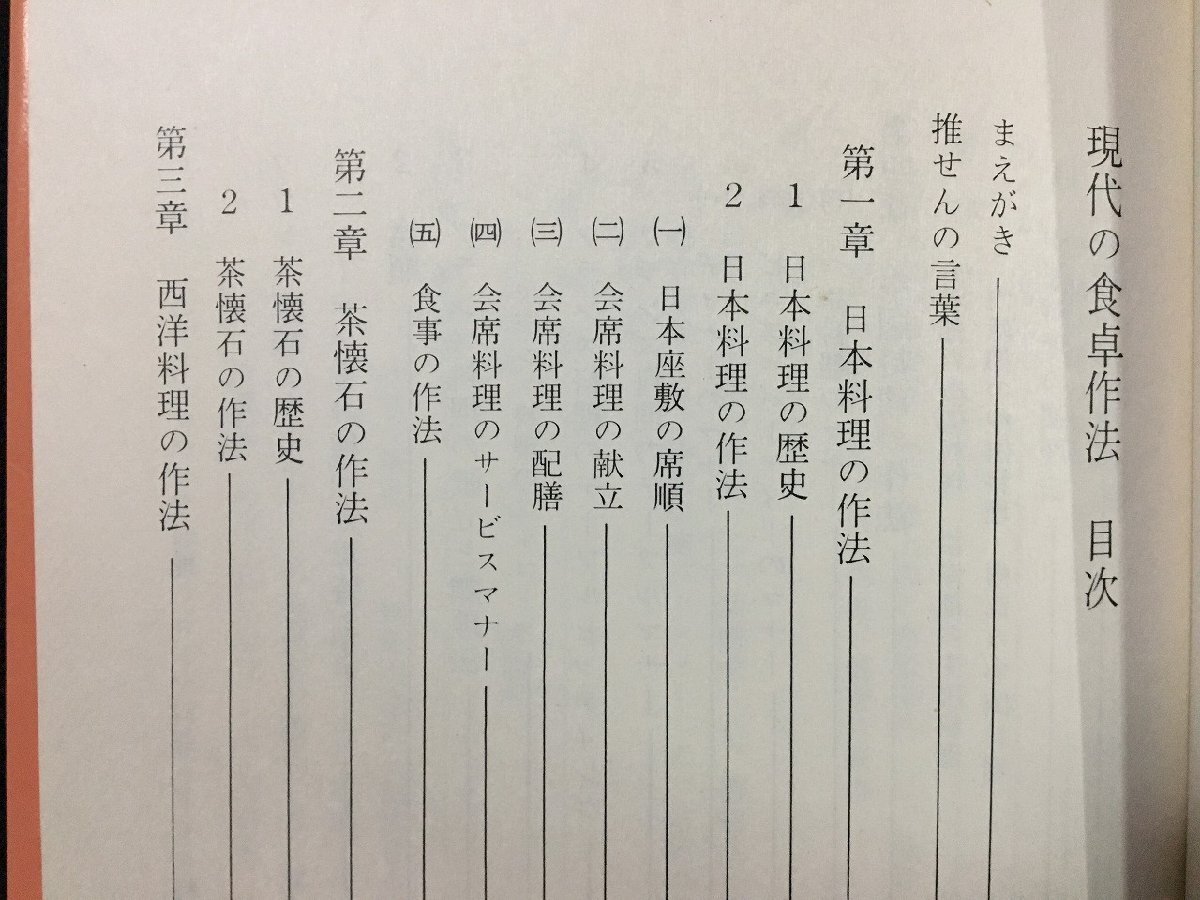 現代の食卓作法　目次
まえがき
推せんの言葉
第一章　日本料理の作法
1　日本料理の歴史
2　日本料理の作法
㈠　日本座敷の席順
㈡　会席料理の献立
㈢　会席料理の配膳
㈣　会席料理のサービスマナー
㈤　食事の作法
第二章　茶懐石の作法
1　茶懐石の歴史
2　茶懐石の作法
第三章　西洋料理の作法